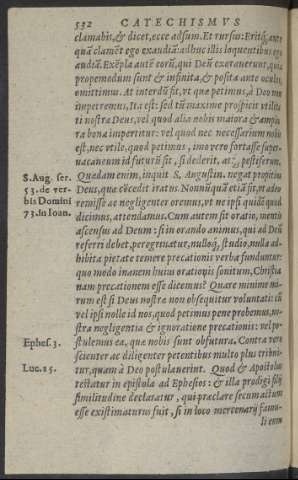 532 CATECHISMVS
clamabis, & dicet, ecce adsum. Et rursus: Eritq́; ante
quā clamēt ego exaudiā: adhuc illis loquentibus ego
audiā. Exēpla autē eorū, qui Deū exorauerunt, quia
propemodum sunt & infinita, & posita ante oculos,
omittimus. At interdū fit, vt quæ petimus, à Deo non
impetremus, Ita est: sed tū maxime prospicit vtilita
ti nostræ Deus, vel quod alia nobis maiora & amplio
ra bona impertitur: vel quod nec necessarium nobis
est, nec vtile, quod petimus, imo vero fortasse super-
uacaneum id futurū sit, si dederit, atq; pestiferum.
S. Aug. ser. Quædam enim, inquit S. Augustin. negat propitius
53. de ver- Deus, quæ cōcedit iratus. Nonnūquā etiā fit, vt adeo
bis Domini remisse ac negligenter oremus, vt ne ipsi quidē quod
73. in Ioan. dicimus, attendamus. Cum autem sit oratio, mentis
ascensus ad Deum: si in orando animus, qui ad Deū
referri debet, peregrinatur, nulloq́, studio, nulla ad-
hibita pietate temere precationis verba funduntur:
quo modo inanem huius orationis sonitum, Christia
nam precationem esse dicemus? Quare minime mi-
rum est si Deus nostræ non obsequitur voluntati: cū
vel ipsi nolle id nos, quod petimus pene probemus, no-
stra negligentia & ignoratione precationis: vel po-
stulemus ea, quæ nobis sint obfutura. Contra vero
Ephes. 3. scienter ac diligenter petentibus multo plus tribui-
Luc. 15. tur, quàm à Deo postulauerint. Quod & Apostolus
testatur in epistola ad Ephesios: & illa prodigi filij
similitudine declaratur, qui præclare secum actum
esse existimaturus fuit, si in loco mercenarij famu-
li eum